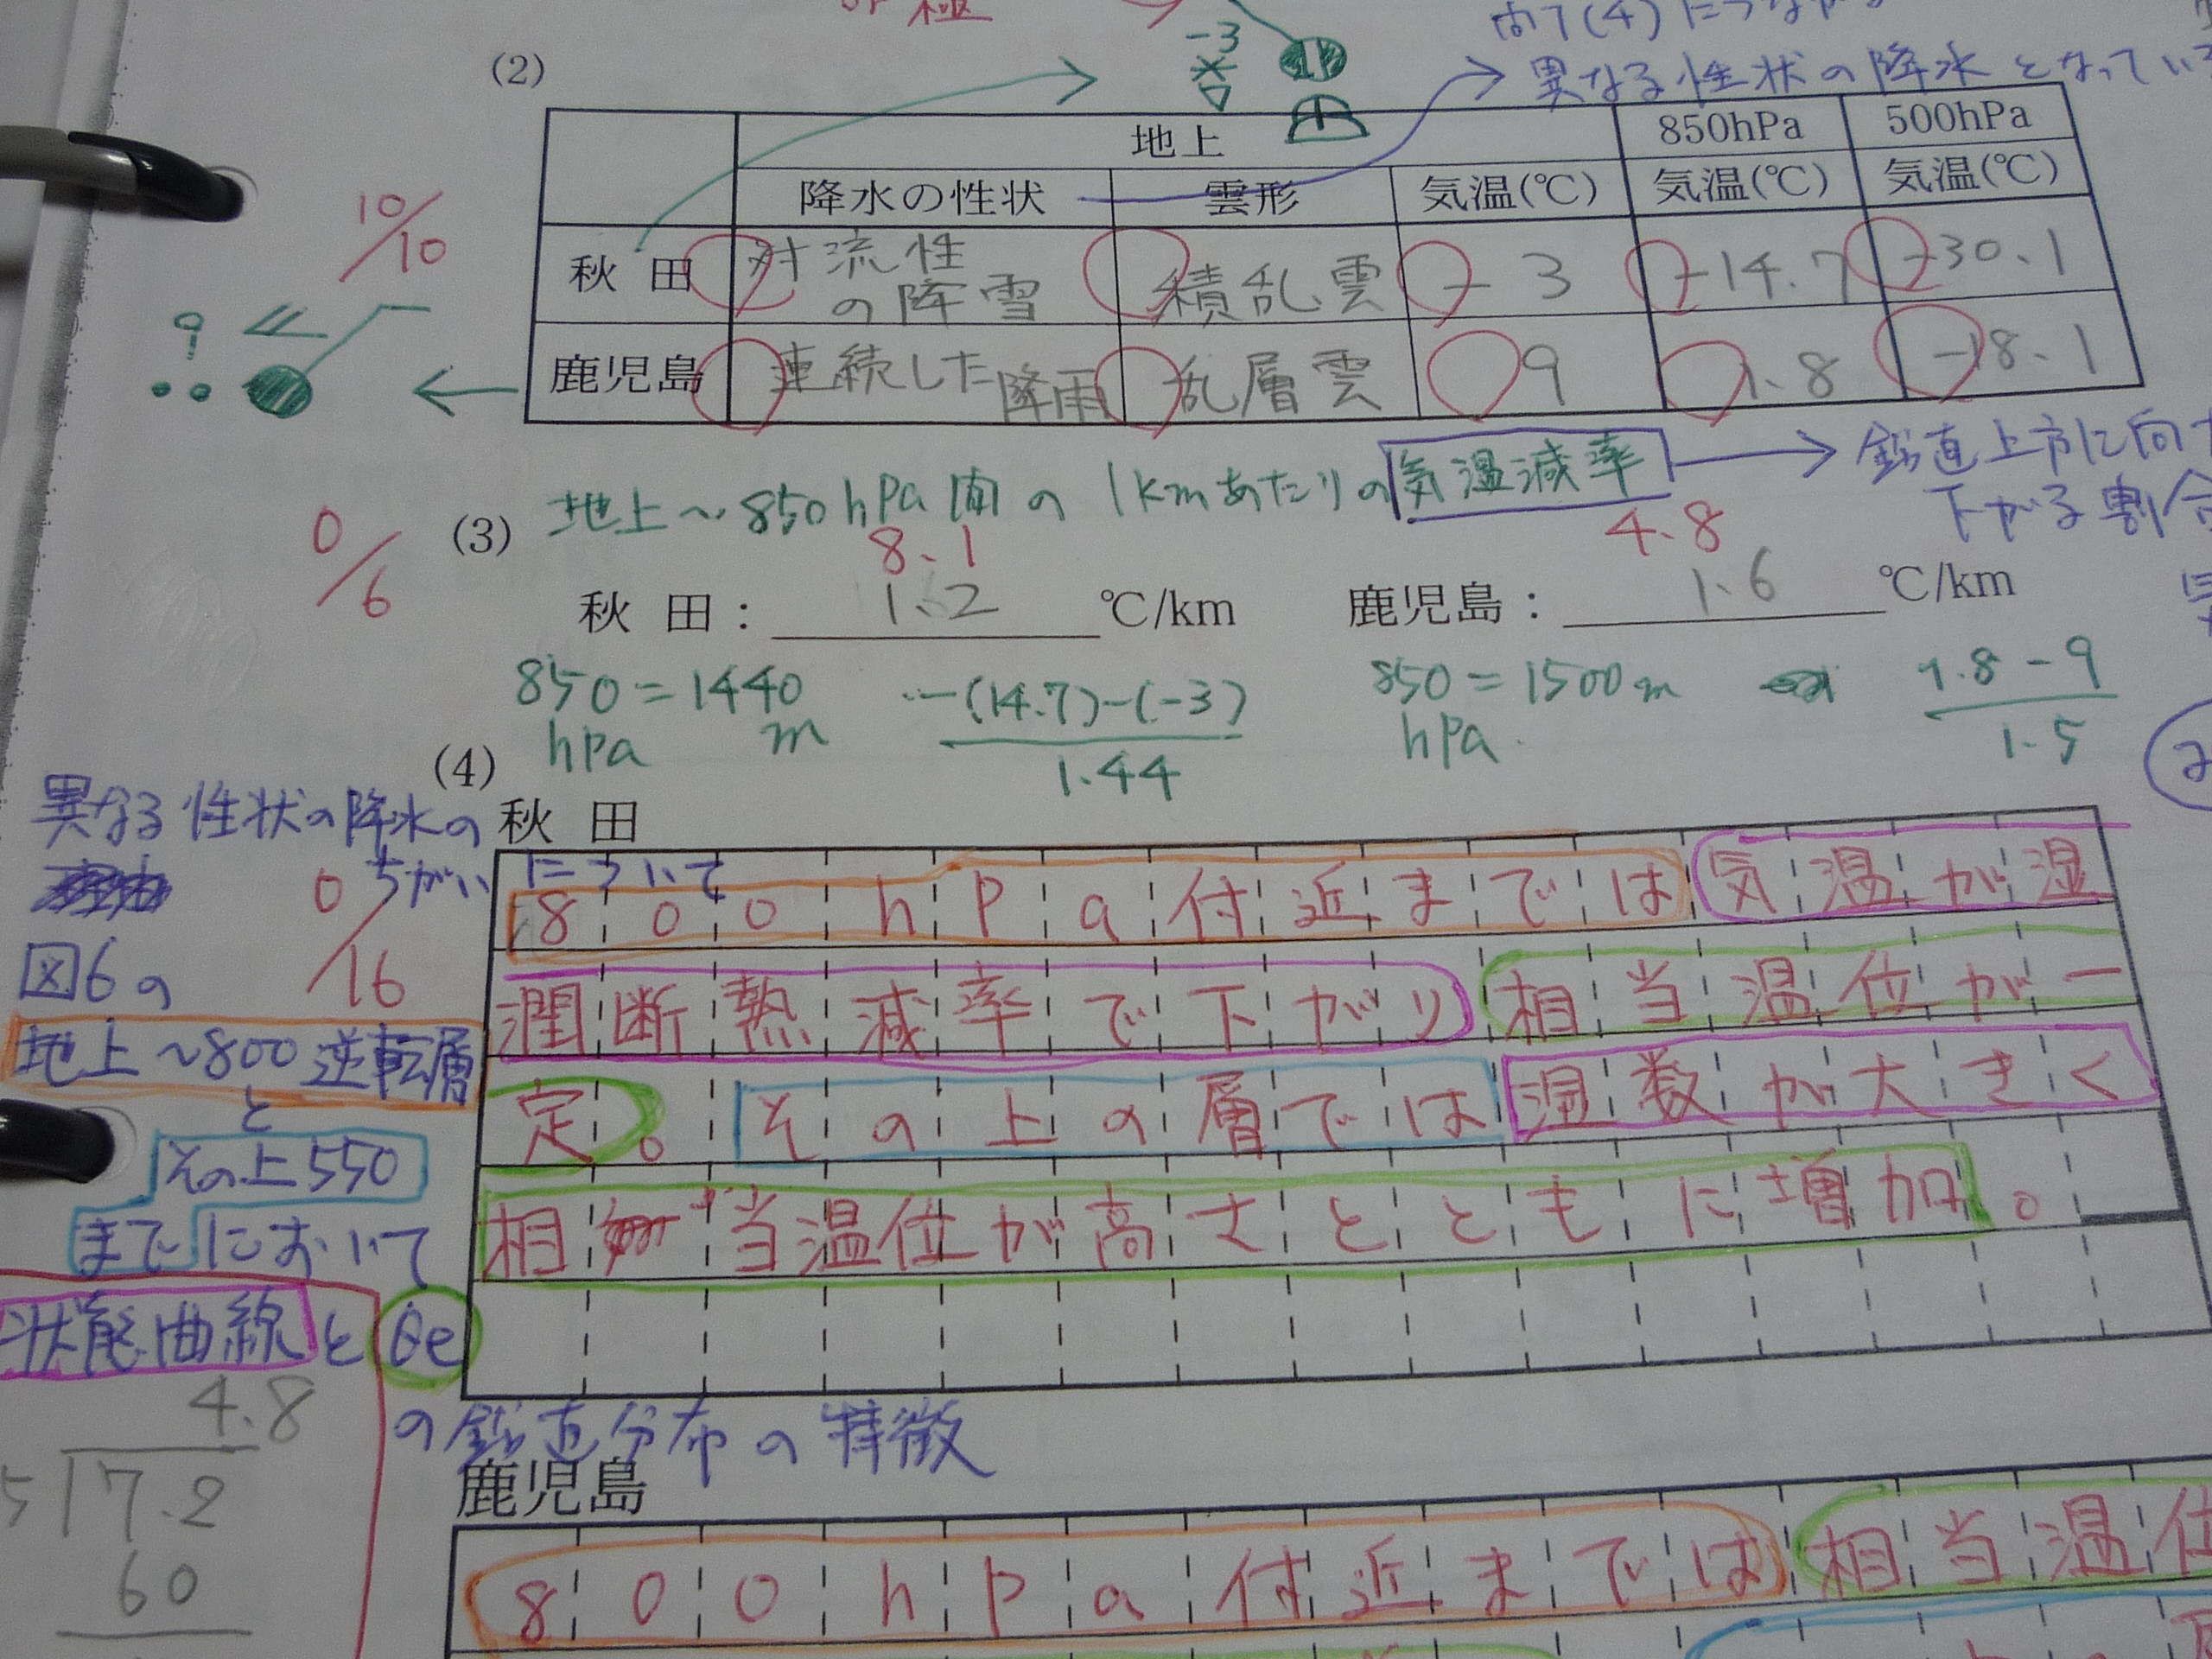 (2)
-3
異なる性状の降水となってい
地上
850hPa
500hPa
降水の性状
雲形
気温(℃)
気温(℃)
気温(℃)
10/10
秋田
対流性の降雪
積乱雲
-3
-14.7
-30.1
9
鹿児島
連続した降雨
乱層雲
9
1.8
-18.1
地上〜850hPa間の1kmあたりの気温減率
鉛直上方に向
下がる割合
0/6
(3)
8.1
4.8
秋田: 1.2 ℃/km
鹿児島: 1.6 ℃/km
850hPa=1440m
-(14.7)-(-3)
1.44
850hPa=1500m
1.8-9
1.5
(4)
異なる性状の降水の
ちがいについて
0/16
図6の
地上〜800逆転層
と
その上550
までにおいて
状態曲線とθe
の鉛直分布の特徴
秋田
800hPa付近までは気温が湿
潤断熱減率で下がり相当温位が一
定。その上の層では湿数が大きく
相当温位が高さとともに増加。
4.8
5
7.2
60
鹿児島
800hPa付近までは相当温位